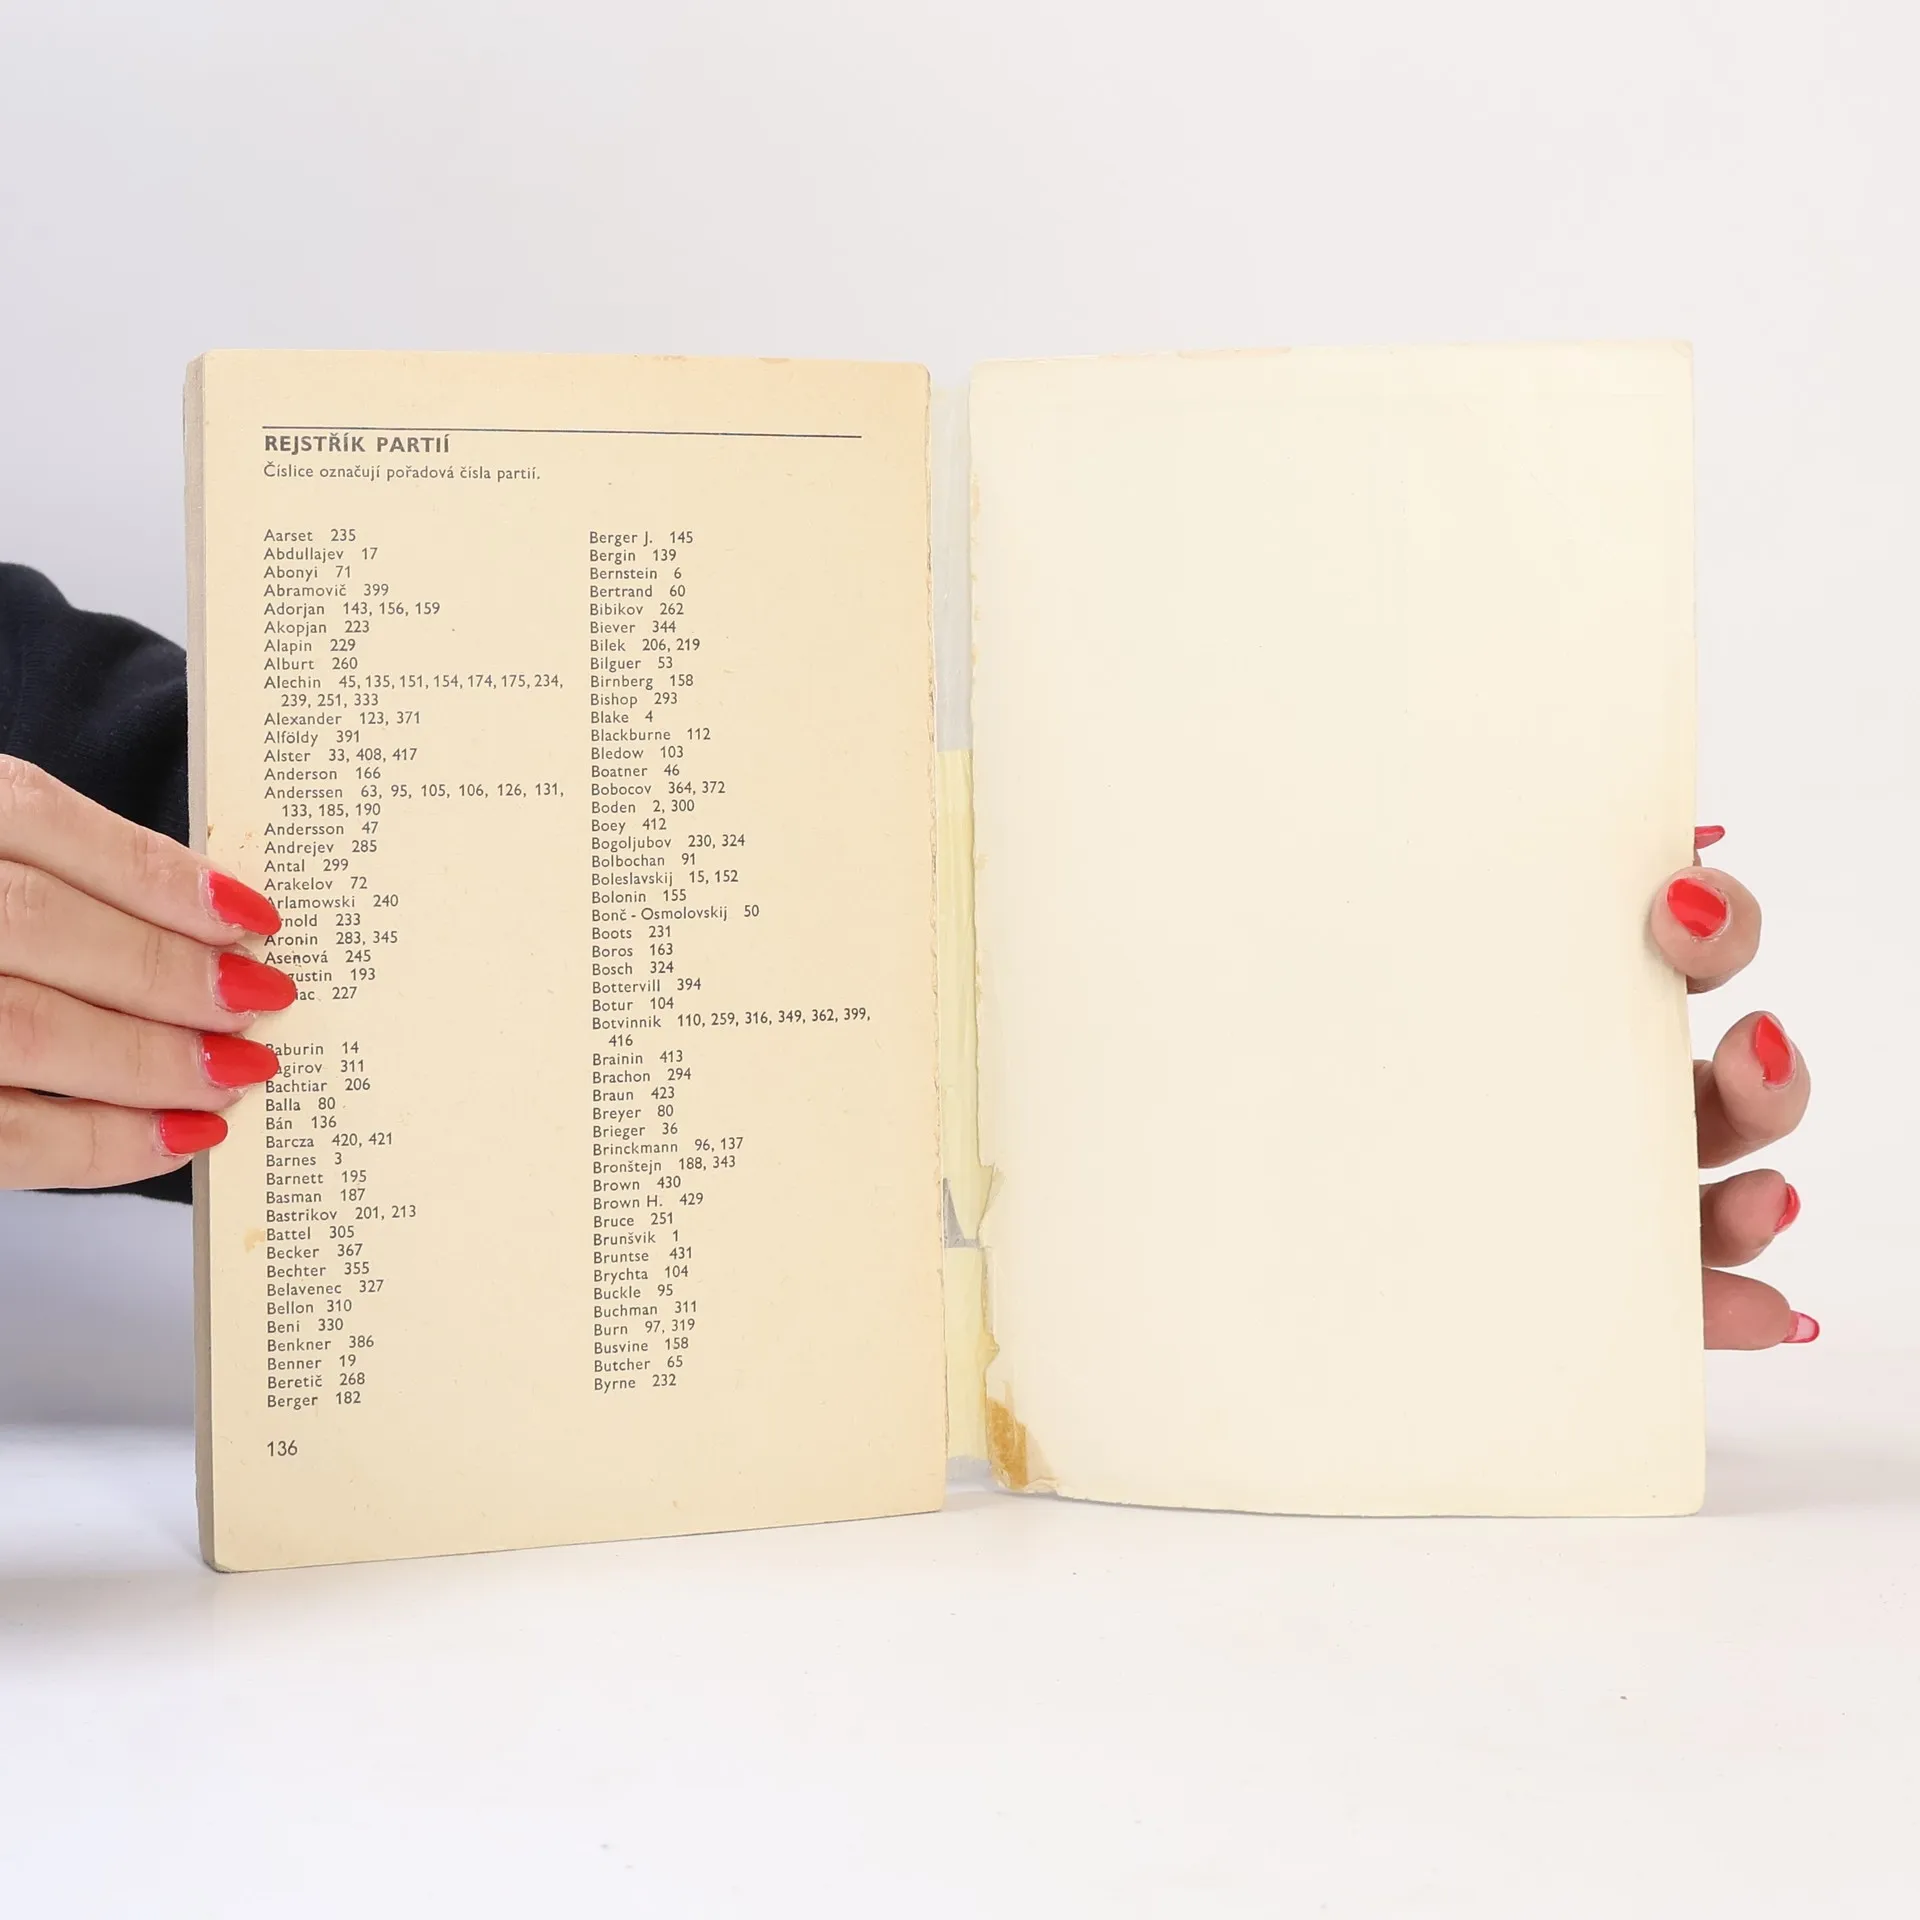 REJSTŘÍK PARTIÍ
Číslice označují pořadová čísla partií.
Aarset 235
Abdullajev 17
Abonyi 71
Abramovič 399
Adorjan 143, 156, 159
Akopjan 223
Alapin 229
Alburt 260
Alechin 45, 135, 151, 154, 174, 175, 234,
239, 251, 333
Alexander 123, 371
Alföldy 391
Alster 33, 408, 417
Anderson 166
Anderssen 63, 95, 105, 106, 126, 131,
133, 185, 190
Andersson 47
Andrejev 285
Antal 299
Arakelov 72
Arlamowski 240
Arnold 233
Aronin 283, 345
Asenová 245
193
227
Baburin 14
Bagirov 311
Bachtiar 206
Balla 80
Bán 136
Barcza 420, 421
Barnes 3
Barnett 195
Basman 187
Bastrikov 201, 213
Battel 305
Becker 367
Bechter 355
Belavenec 327
Bellon 310
Beni 330
Benkner 386
Benner 19
Beretič 268
Berger 182
Berger J. 145
Bergin 139
Bernstein 6
Bertrand 60
Bibikov 262
Biever 344
Bilek 206, 219
Bilguer 53
Birnberg 158
Bishop 293
Blake 4
Blackburne 112
Bledow 103
Boatner 46
Bobocov 364, 372
Boden 2, 300
Boey 412
Bogoljubov 230, 324
Bolbochan 91
Boleslavskij 15, 152
Bolonin 155
Bonč - Osmolovskij 50
Boots 231
Boros 163
Bosch 324
Bottervill 394
Botur 104
Botvinnik 110, 259, 316, 349, 362, 399,
416
Brainin 413
Brachon 294
Braun 423
Breyer 80
Brieger 36
Brinckmann 96, 137
Bronštejn 188, 343
Brown 430
Brown H. 429
Bruce 251
Brunšvik 1
Bruntse 431
Brychta 104
Buckle 95
Buchman 311
Burn 97, 319
Busvine 158
Butcher 65
Byrne 232
136